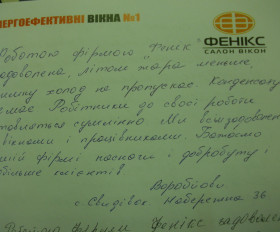 НЕРГОЕФЕКТИВНІ ВІКНА №1
ФЕНІКС
САЛОН ВІКОН
Роботою фірмою "Фенік
задоволена, літом жара менше,
зимку холод на пропускає. Конденсату
має. Робітники до своєї роботи
ставляться сумлінно. Ми всі задоволені
вікнами і працівниками. Бажаємо
шій фірмі наснаги і добробуту,
більше клієнтів.
Воробйови
с. Свидівок. Набережна 36
фірми Фенікс задоволе